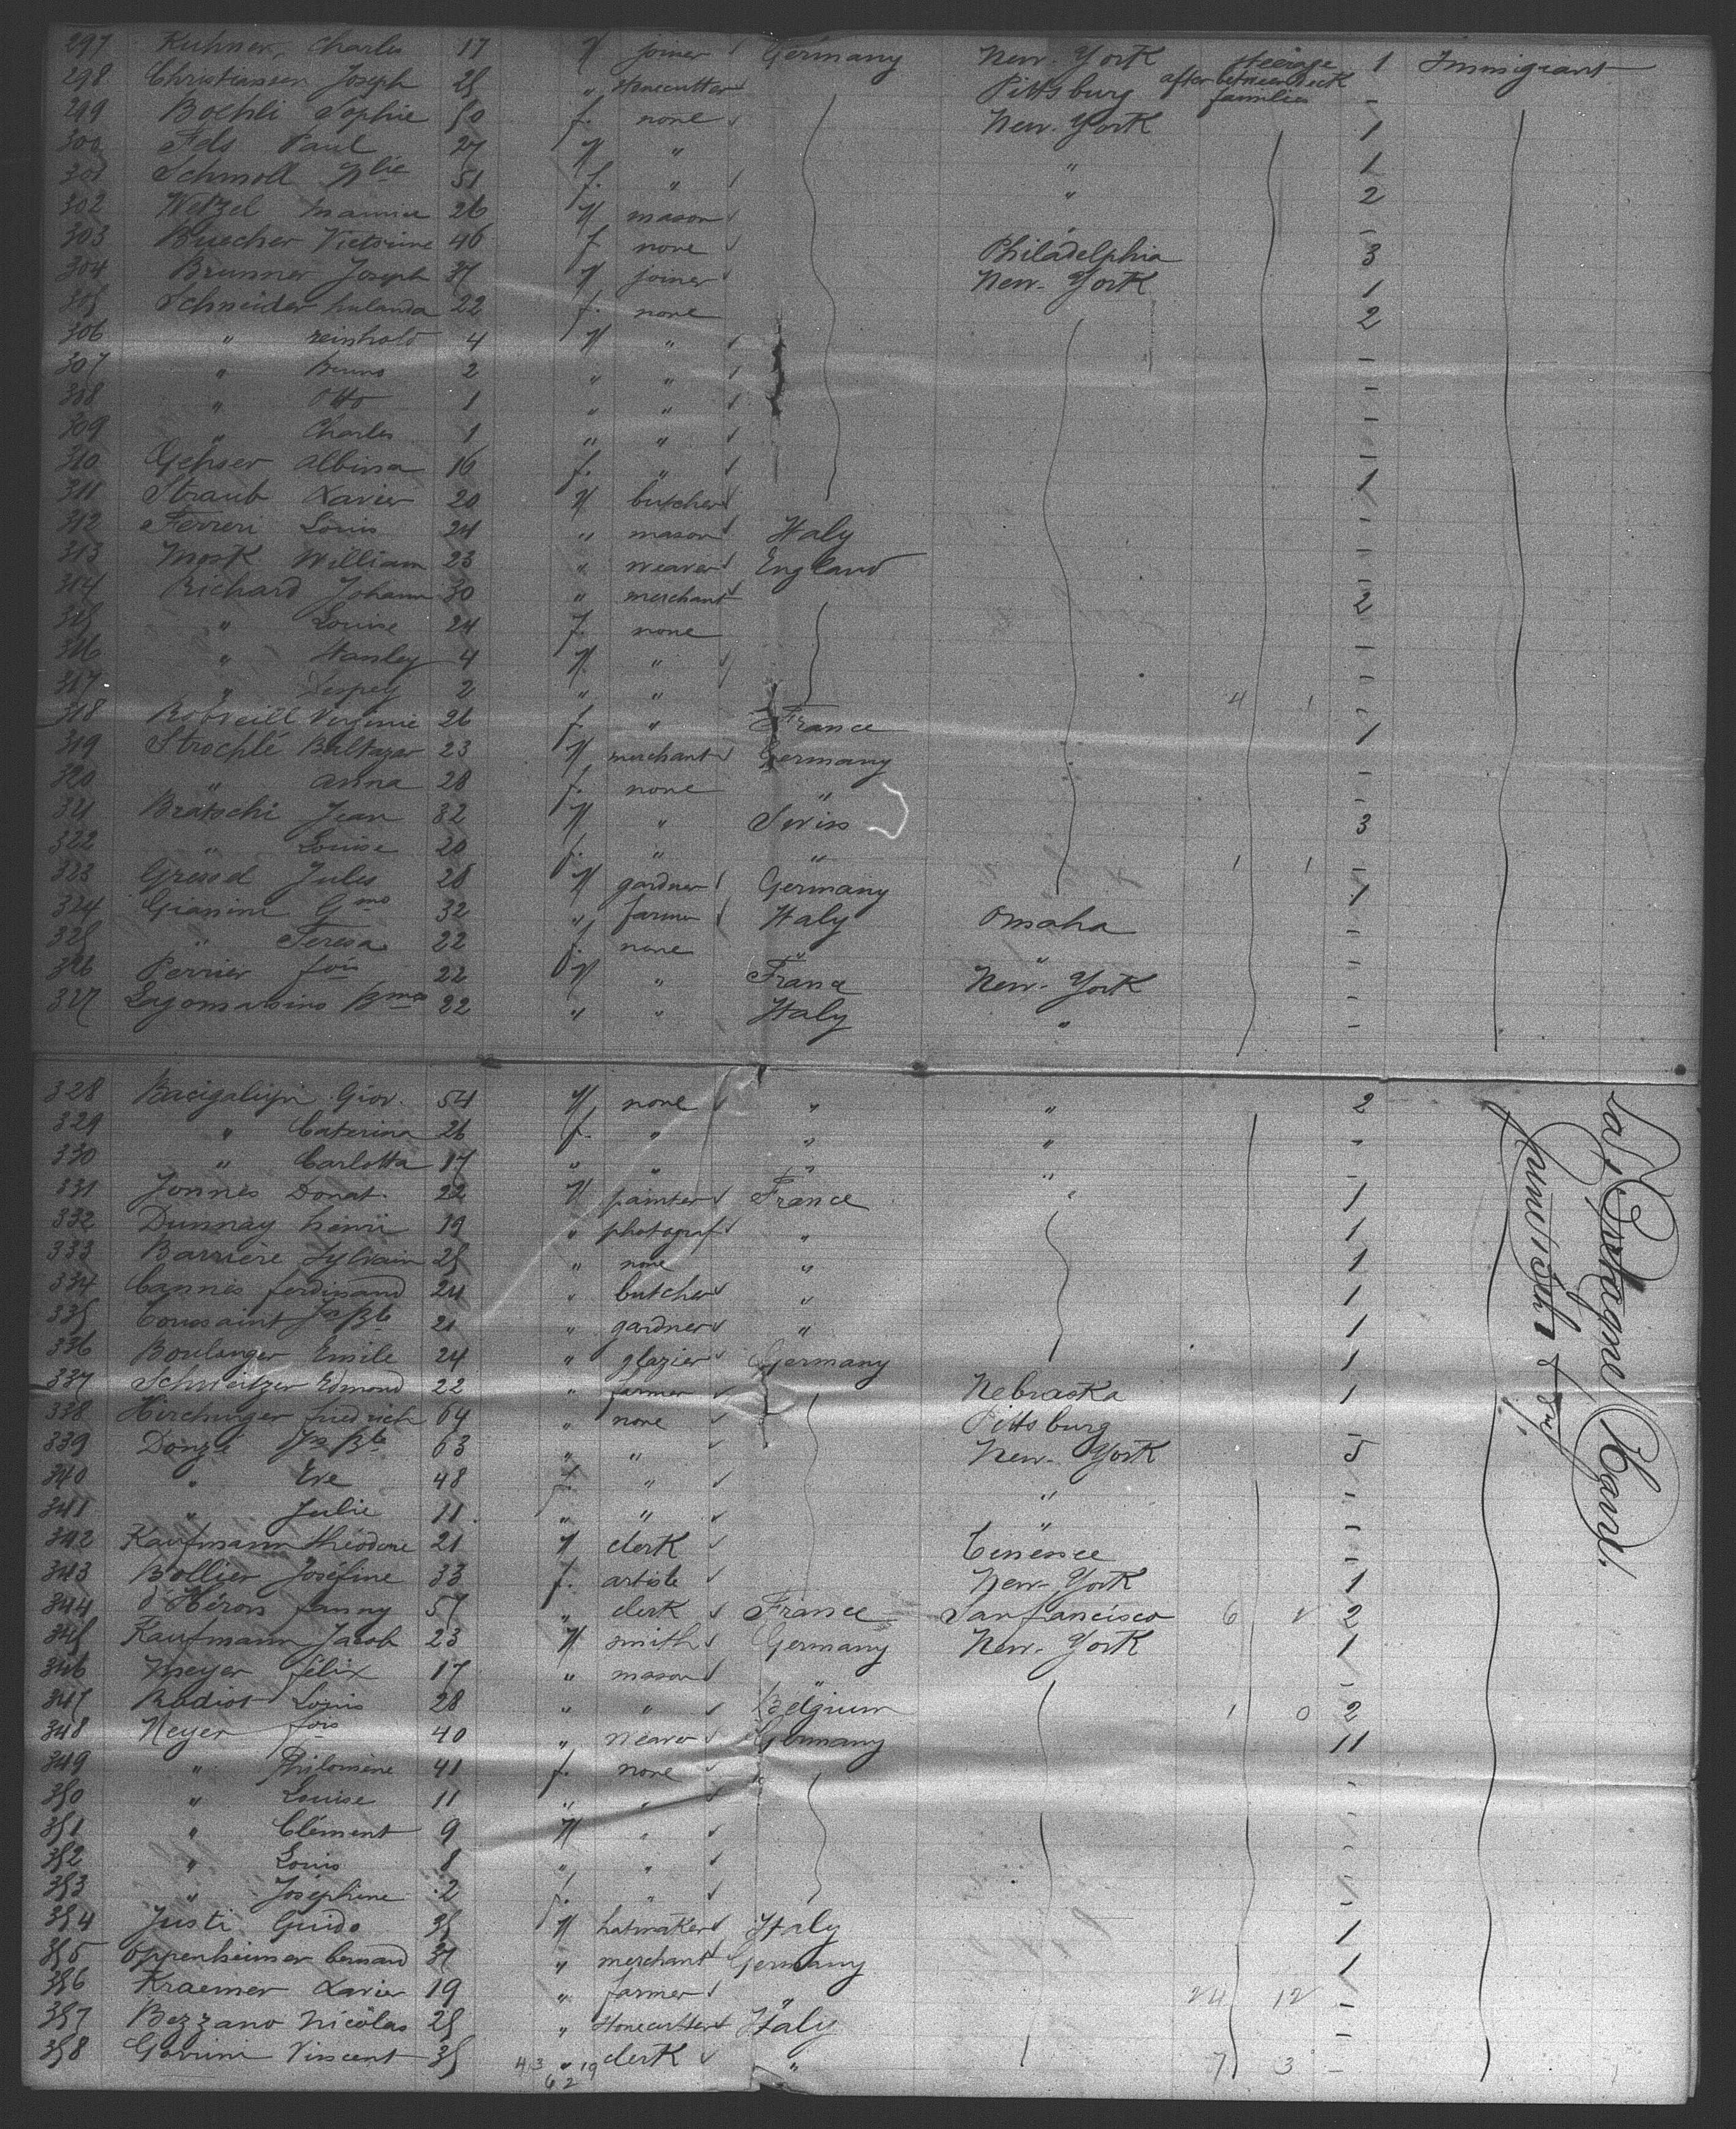 297 Kuhner, Charles 17 M joiner Germany New-York steerage 1 Immigrant
298 Christiansen Joseph 25 " stonecutter Pittsburg after between deck families -
299 Boehli Sophie 50 f. none New-York 1
300 Fels Paul 27 M " " 1
301 Schmoll 51 f. " " 2
302 Wetzel 26 M mason -
303 Buecher Victorine 46 f none Philadelphia 3
304 Brunner Joseph 37 M joiner New-York 1
305 Schneider 22 f. none 2
306 " reinhold 4 M " -
307 " Bruno 2 " " -
308 " Otto 1 " " -
309 " Charles 1 " " -
310 Gehser Albina 16 f. " 1
311 Straub Xavier 20 M butcher -
312 Ferreri Louis 24 " mason Italy -
313 Mosk William 23 " weaver England -
314 Richard Johann 30 " merchant 2
315 " Louise 24 f. none -
316 " Stanley 4 M. " -
317 " 2 " " 4 1 -
318 Virginie 26 f. " France 1
319 Stroehlé Baltazar 23 M merchant Germany -
320 " Anna 28 f. none " -
321 Bratschi Jean 32 M " Swiss 3
322 " Louise 20 f. " " 1 1 -
323 Gressel Jules 28 M gardner Germany 1
324 Gianini Gmo 32 " farmer Italy Omaha -
325 " Teresa 22 f. none " " -
326 Perrier fois 22 M " France New-York -
327 Lagomarsino 22 " " Italy " -
328 Bacigalupi Giov. 54 M none " " 2
329 " Caterina 26 f. " " " -
330 " Carlotta 17 " " " " -
331 Jonnès Donat 22 M painter France " 1
332 Dunnay henri 19 " photograf " 1
333 Barrière Sylvain 25 " none " 1
334 Cannès ferdinand 24 " butcher " 1
335 Toussaint Jn Bte 21 " gardner " 1
336 Boulanger Emile 24 " glazier Germany 1
337 Schweitzer Edmond 22 " farmer Nebraska 1
338 friedrich 64 " none Pittsburg -
339 Donzé Jn Bte 63 " " New-York 5
340 " Eve 48 f. " " -
341 " Julie 11 " " " -
342 Kaufmann théodore 21 M clerk -
343 Bollier Joséfine 33 f. artiste New-York 1
344 d'Héron fanny 57 " clerk France San francisco 6 2
345 Kaufmann Jacob 23 M smith Germany New-York 1
346 Meyer félix 17 " mason " -
347 Badiot Louis 28 " " Belgium 1 0 2
348 Meyer fois 40 " weaver Germany 11
349 " Philomène 41 f. none -
350 " Louise 11 " " -
351 " Clément 9 M " -
352 " Louis 8 " " -
353 " Joséphine 2 f. " -
354 Justi Guido 35 M hatmaker Italy 1
355 Oppenheimer bernard 37 " merchant Germany 1
356 Kraemer Xavier 19 " farmer " 24 12 -
357 Bezzano Nicolas 25 " stonecutter Italy -
358 Gorrini Vincent 35 " clerk " 7 3 -
43 19
62
La Bretagne